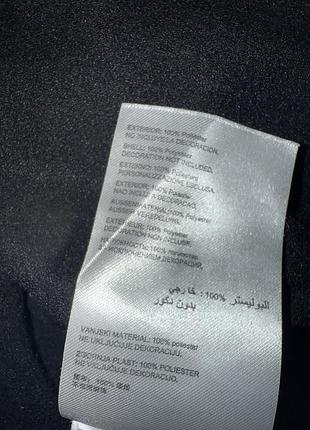 EXTERIOR: 100% Poliéster
NO INCLUYE LA DECORACION.
SHELL: 100% Polyester
DECORATION NOT INCLUDED.
ESTERNO: 100% Poliestere
PERSONALIZZAZIONE ESCLUSA.
EXTERIOR: 100% Poliéster
NAO INCLUI A DECORAÇAO.
AUSSENMATERIAL: 100% Polyester
AUSSER VEREDELUNG.
EXTERIEUR: 100% Polyester
DECORATION NON INCLUSE.
НАРУЖНОСТЬ: 100%
ИСКЛЮЧЕНИЕМ ДЕКОРАЦИЙ.
البوليستر %100: خارجي
بدون ديكور
VANJSKI MATERIAL: 100% poliester
NE UKLJUČUJE DEKORACIJU.
100% POLIESTER
NE VKLJUČUJE DEKORACIJE.
100%